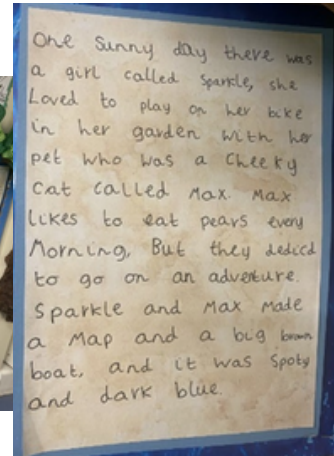 One Sunny day there was
a girl called Sparkle, she
Loved to play on her bike
in her garden with her
pet who was a Cheeky
Cat called Max. Max
likes to eat pears every
Morning, But they dedicd
to go on an adventure.
Sparkle and Max Made
a Map and a big brown
boat, and it was Spoty
and dark blue.